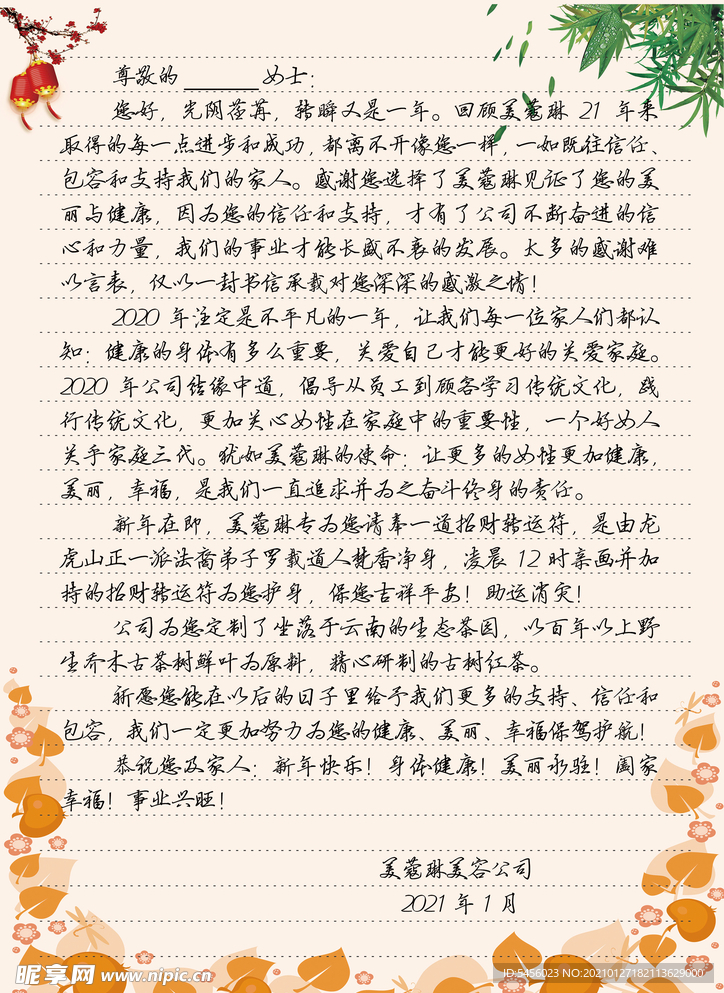 尊敬的______女士：
您好，光阴荏苒，转瞬又是一年。回顾美蔻琳 21 年来
取得的每一点进步和成功，都离不开像您一样，一如既往信任、
包容和支持我们的家人。感谢您选择了美蔻琳见证了您的美
丽与健康，因为您的信任和支持，才有了公司不断奋进的信
心和力量，我们的事业才能长盛不衰的发展。太多的感谢难
以言表，仅以一封书信承载对您深深的感激之情！
2020 年注定是不平凡的一年，让我们每一位家人们都认
知：健康的身体有多么重要，关爱自己才能更好的关爱家庭。
2020 年公司结缘中道，倡导从员工到顾客学习传统文化，践
行传统文化，更加关心女性在家庭中的重要性，一个好女人
关乎家庭三代。犹如美蔻琳的使命：让更多的女性更加健康，
美丽，幸福，是我们一直追求并为之奋斗终身的责任。
新年在即，美蔻琳专为您请奉一道招财转运符，是由龙
虎山正一派法裔弟子罗载道人梵香净身，凌晨 12 时亲画并加
持的招财转运符为您护身，保您吉祥平安！助运消灾！
公司为您定制了坐落于云南的生态茶园，以百年以上野
生乔木古茶树鲜叶为原料，精心研制的古树红茶。
祈愿您能在以后的日子里给予我们更多的支持、信任和
包容，我们一定更加努力为您的健康、美丽、幸福保驾护航！
恭祝您及家人：新年快乐！身体健康！美丽永驻！阖家
幸福！事业兴旺！
美蔻琳美容公司
2021 年 1 月
昵享网 www.nipic.cn
ID:5456023 NO:20210127182113629000